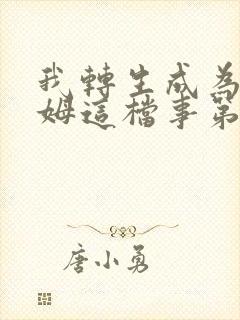 我轉生成為
姆這檔事第
唐小勇